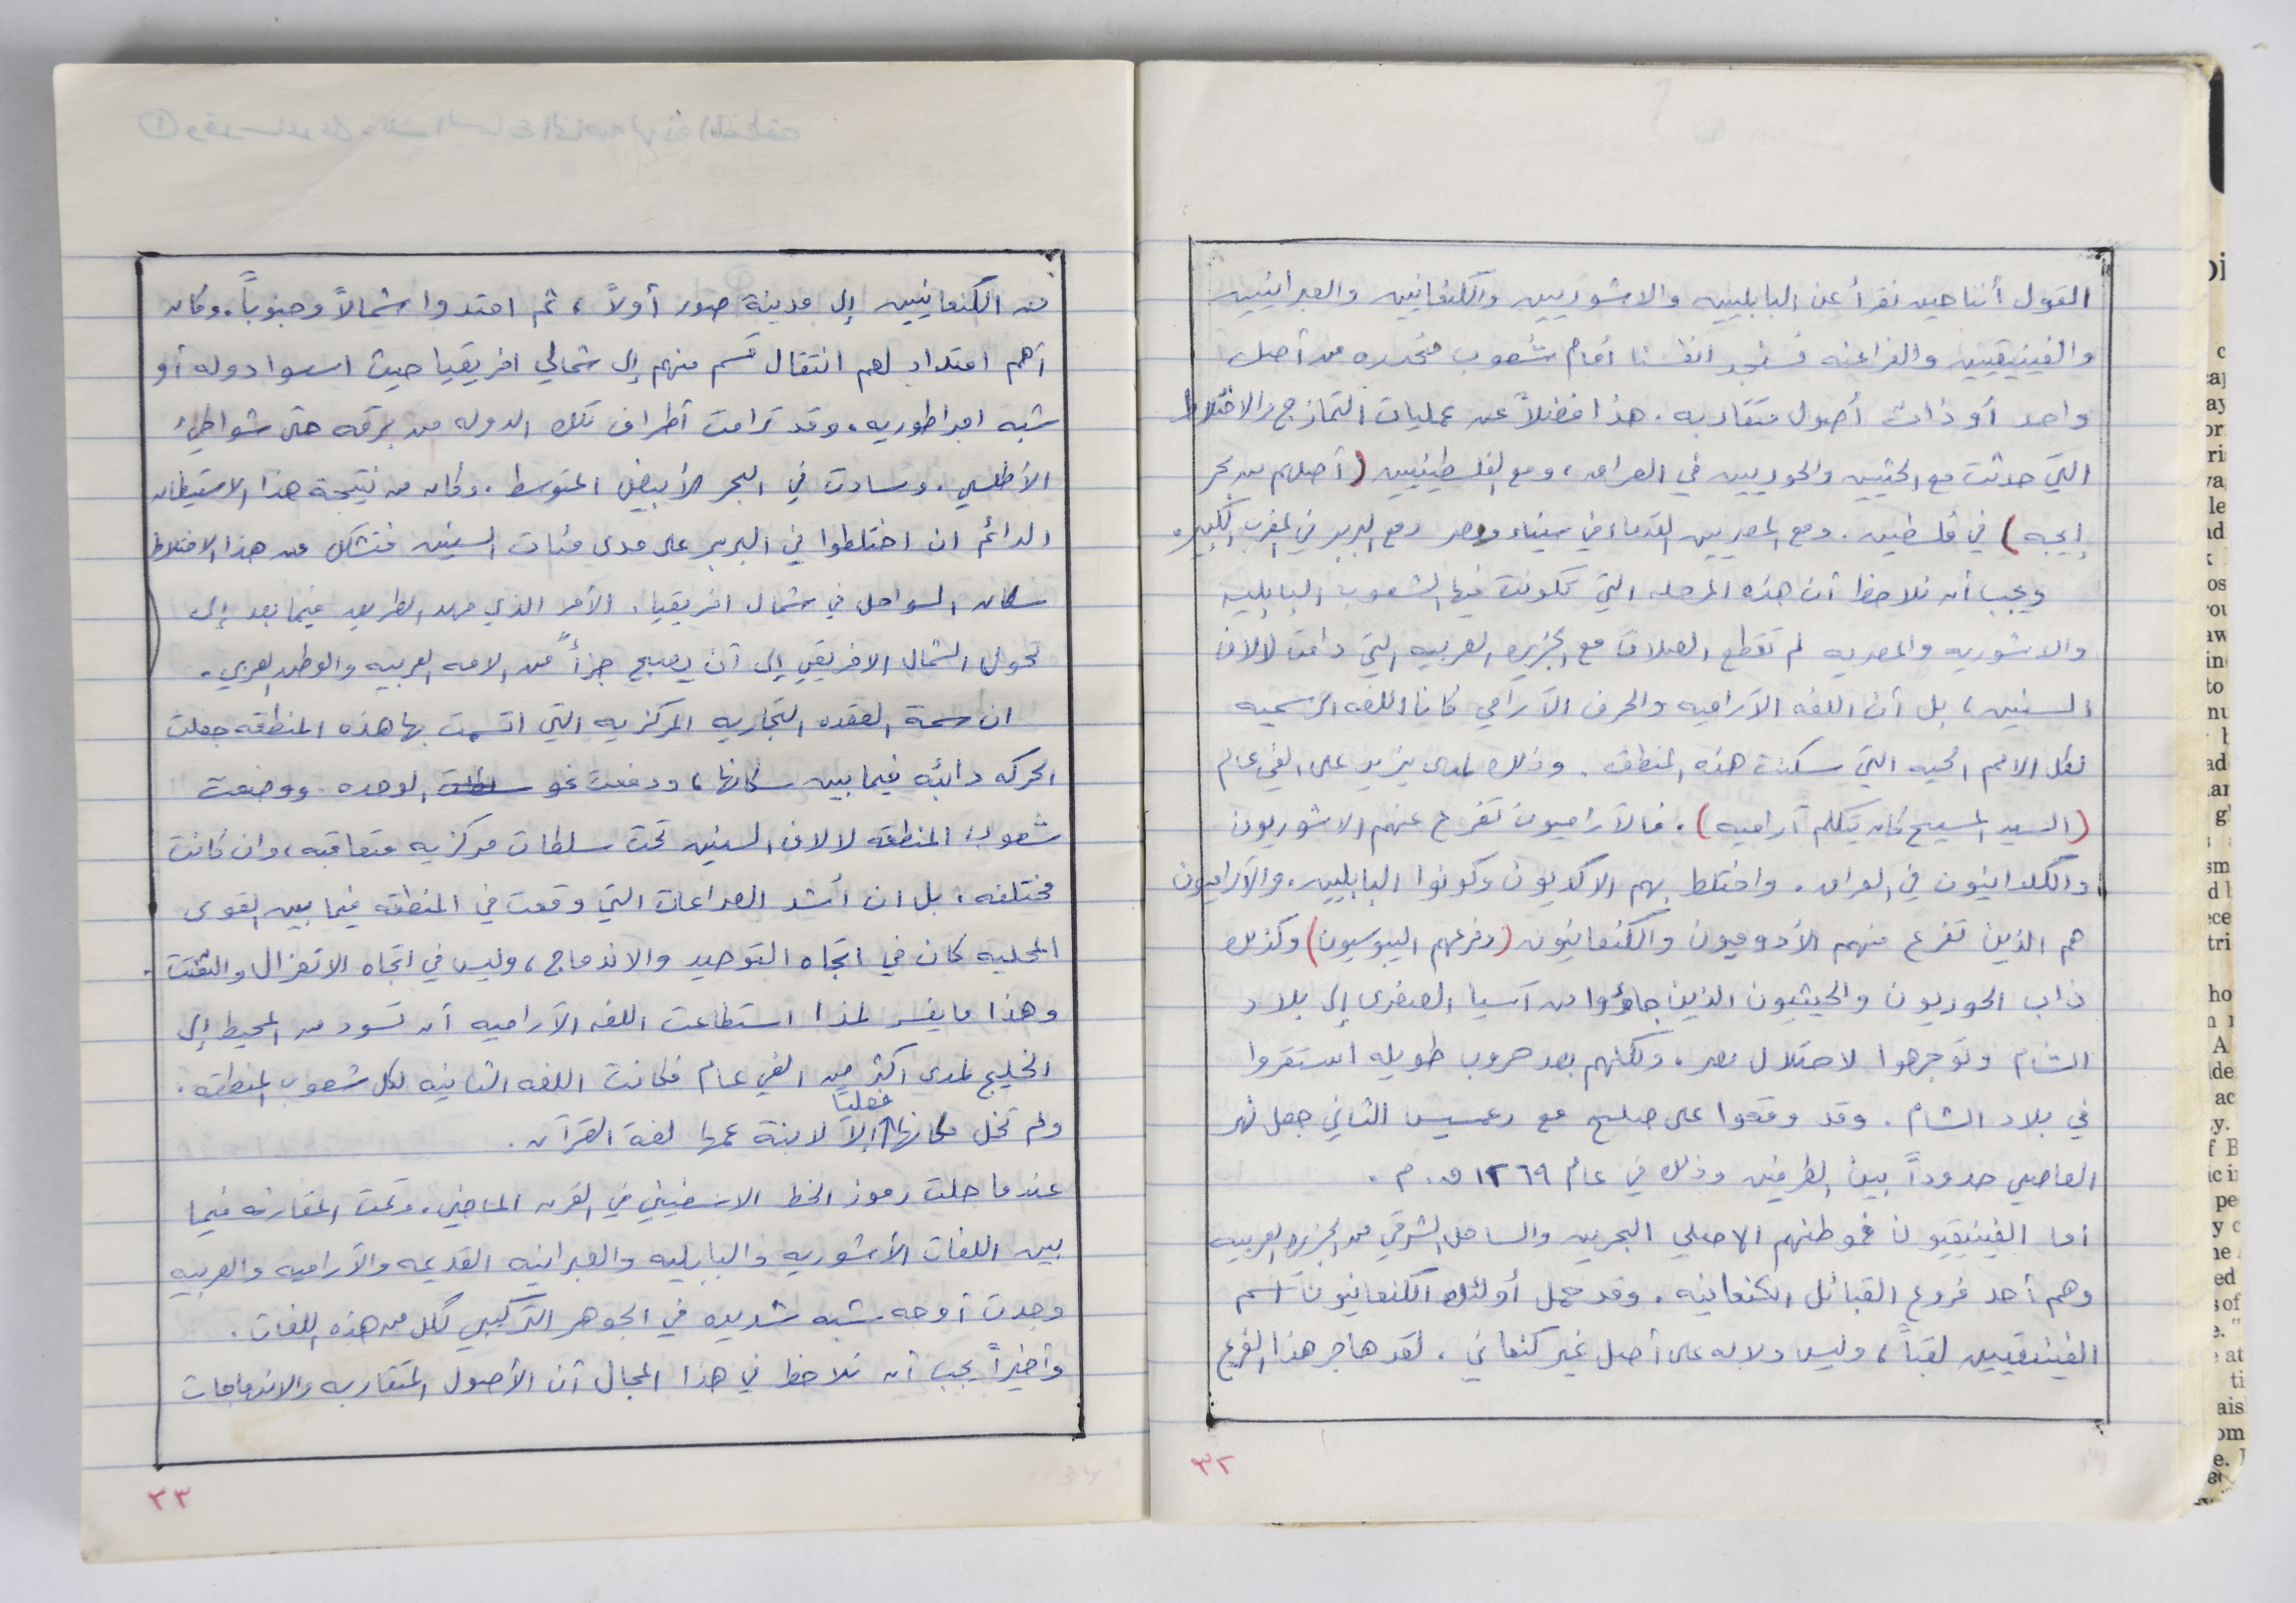 القول أننا حين نقرأ عن البابليين والاشوريين والكنعانيين والعبرانيين
والفينيقيين والفراعنه فسنجد انفسنا أمام شعوب منحدره من أصل
واحد أو ذات أصول متقاربه. هذا فضلاً عن عمليات التمازج والاختلاط
التي حدثت مع الحثيين والحوريين في العراق، ومع الفلسطينيين (أصلهم من بحر
إيجه) في فلسطين. ومع المصريين القدماء في سيناء ومصر ومع البربر في المغرب الكبير.
ويجب أن نلاحظ أن هذه المرحله التي تكونت فيها الشعوب البابليه
والاشوريه والمصريه لم تقطع الصلات مع الجزيره العربيه التي دامت لالاف
السنين، بل أن اللغه الآراميه والحرف الآرامي كانا اللغه الرسميه
لكل الامم الحيه التي سكنت هذه المنطقه. وذلك لمدى يزيد على الفي عام
(السيد المسيح كان يتكلم آراميه). فالآراميون تفرع عنهم الاشوريون
والكلدانيون في العراق. واختلط بهم الاكديون وكونوا البابليين. والآراميون
هم الذين تفرع منهم الأدوميون والكنعانيون (وفرعهم اليبوسيون) وكذلك
ذاب الحوريون والحيثيون الذين جاؤوا من آسيا الصغرى إلى بلاد
الشام وتوجهوا لاحتلال مصر. ولكنهم بعد حروب طويله استقروا
في بلاد الشام. وقد وقعوا على صلح مع رعمسيس الثاني جعل نهر
العاصي حدوداً بين الطرفين وذلك في عام ١٢٦٩ ق.م.
أما الفينيقيون فموطنهم الاصلي البحرين والساحل الشرقي من الجزيره العربيه
وهم أحد فروع القبائل الكنعانيه. وقد حمل أولئك الكنعانيون اسم
الفينيقيين لقباً، وليس دلاله على أصل غير كنعاني. لقد هاجر هذا الفرع
٣٢
من الكنعانيين إلى مدينة صور أولاً، ثم امتدوا شمالاً وجنوباً. وكان
أهم امتداد لهم انتقال قسم منهم إلى شمالي افريقيا حيث اسسوا دوله أو
شبه امبراطوريه. وقد ترامت أطراف تلك الدوله من برقه حتى شواطئ
الأطلسي. وسادت في البحر الأبيض المتوسط. وكان من نتيجة هذا الاستيطان
الدائم ان اختلطوا في البربر على مدى مئات السنين فتشكل من هذا الاختلاط
سكان السواحل في شمال افريقيا. الأمر الذي مهد الطريق فيما بعد إلى
تحول الشمال الافريقي إلى أن يصبح جزأً من الامه العربيه والوطن العربي.
ان سمة العقده التجاريه المركزيه التي اتسمت بها هذه المنطقه جعلت
الحركه دائبه فيما بين سكانها، ودفعت نحو الوحده. ووضعت
شعوب المنطقه لالاف السنين تحت سلطات مركزيه متعاقبه، وان كانت
مختلفه. بل ان أشد الصراعات التي وقعت في المنطقه فيما بين القوى
المحليه كان في اتجاه التوحيد والاندماج، وليس في اتجاه الانعزال والتفتت.
وهذا ما يفسر لماذا استطاعت اللغه الآراميه أن تسود من المحيط إلى
الخليج لمدى أكثر من الفي عام فكانت اللغه الثانيه لكل شعوب المنطقه.
ولم تخل مكانها فعلياً إلاّ لابنة عمها لغة القرآن.
عندما حلت رموز الخط الاسفيني في القرن الماضي. وتمت المقارنه فيما
بين اللغات الأشوريه والبابليه والعبرانيه القديمه والآراميه والعربيه
وجدت أوجه شبه شديده في الجوهر التركيبي لكل من هذه اللغات.
وأخيراً يجب أن نلاحظ في هذا المجال أن الأصول المتقاربه والاندماجات
٣٣